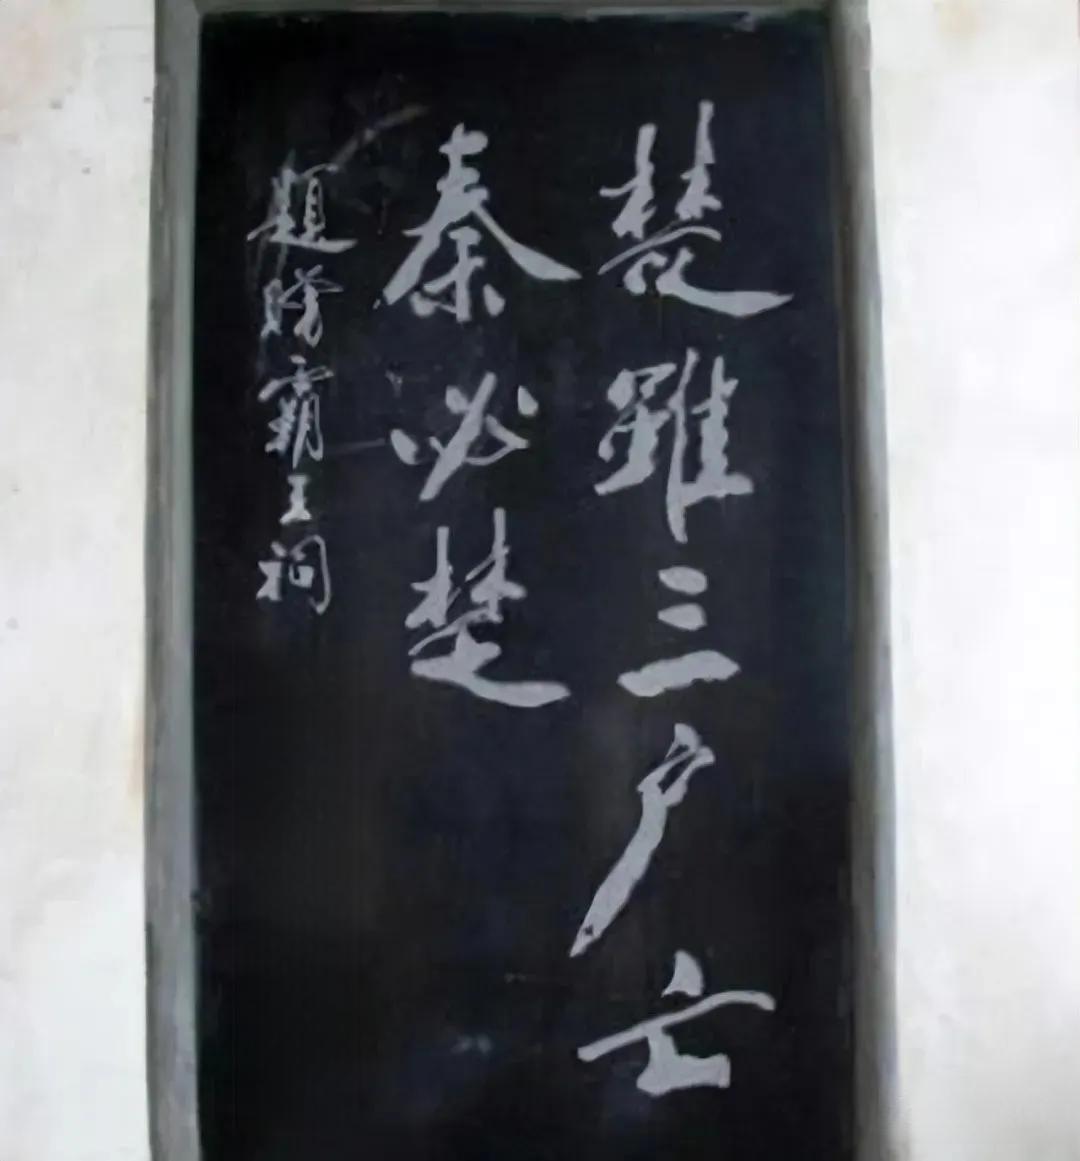 楚雖三户亡
秦必楚
題贈霸王祠